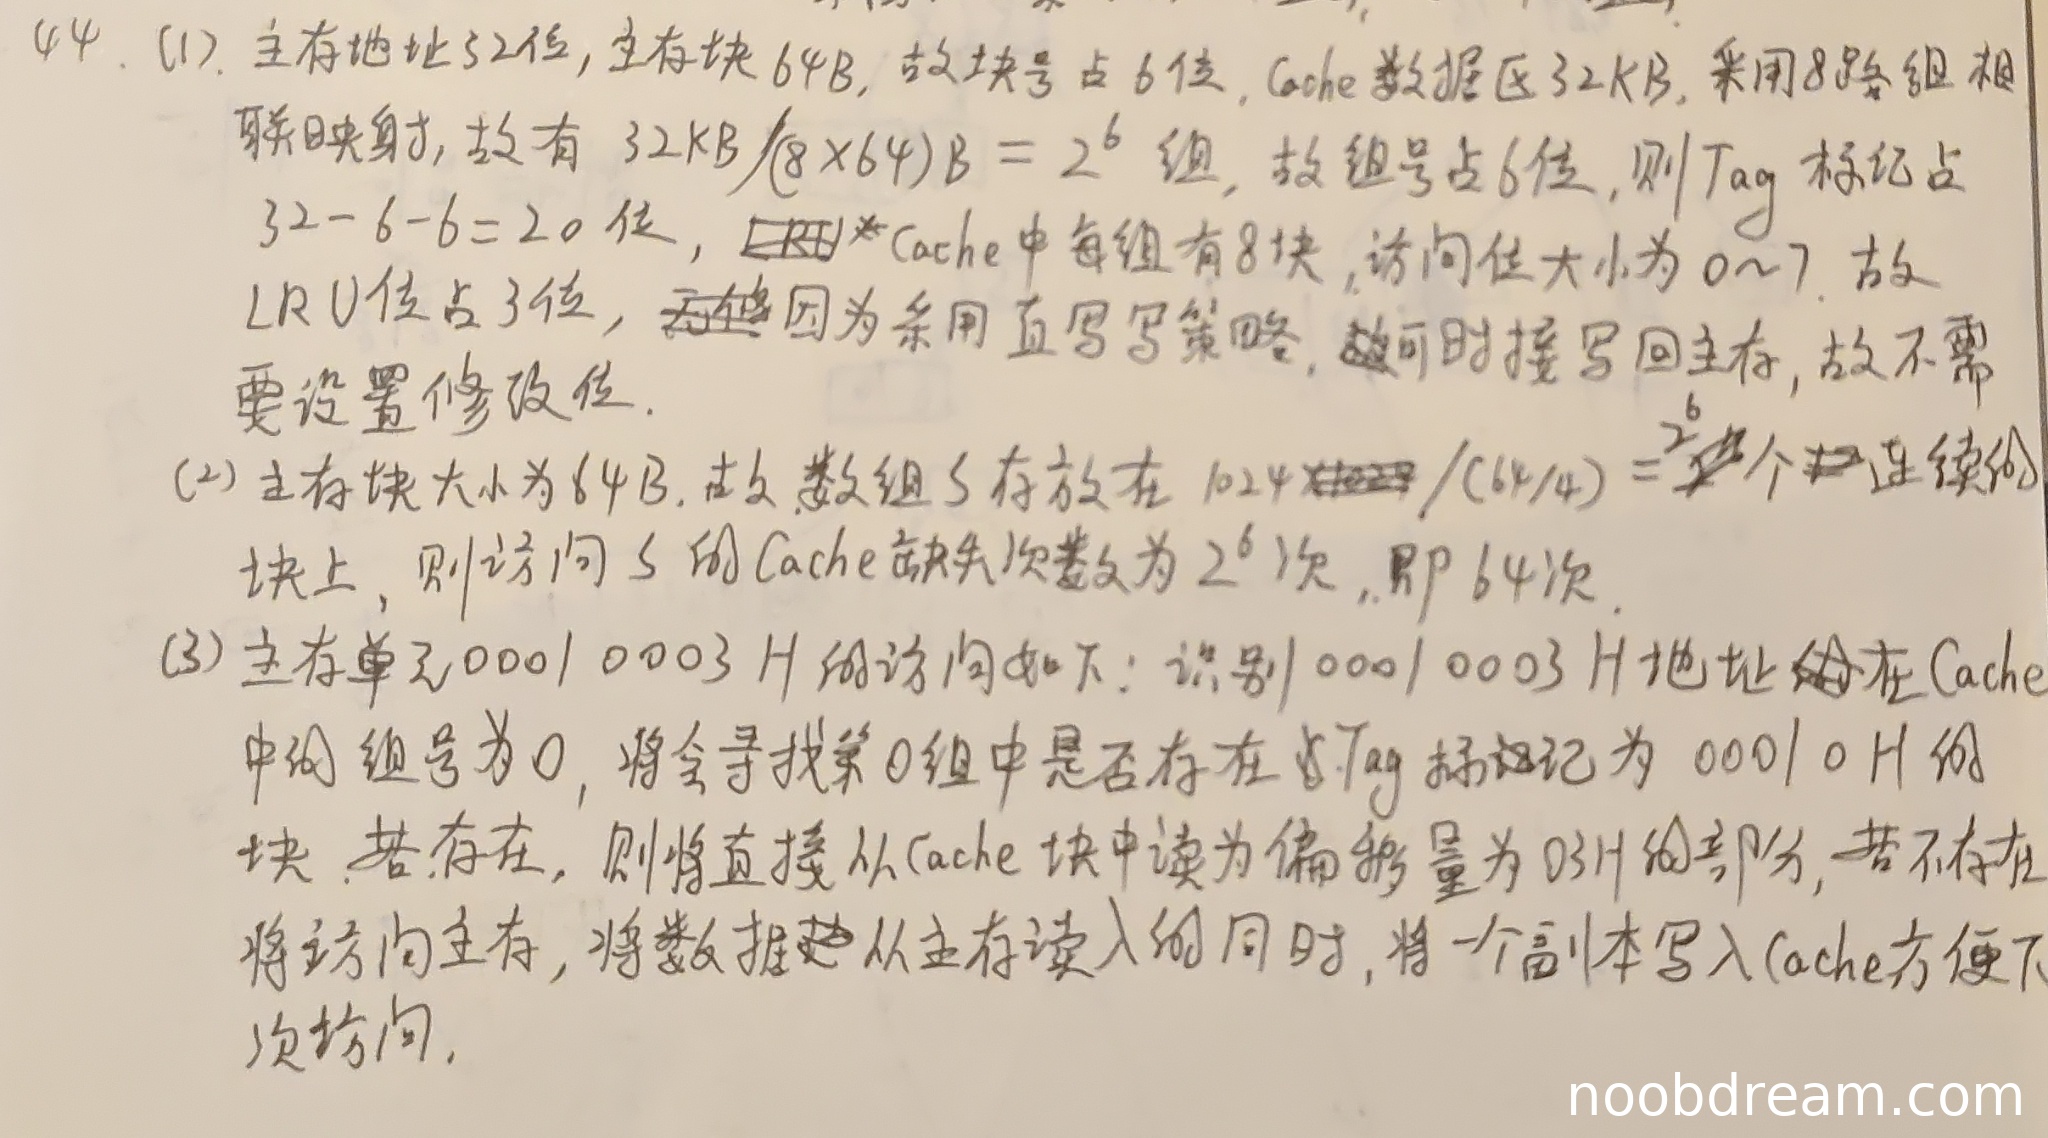 44. (1). 主存地址32位,主存块64B,故块号占6位,Cache数据区32KB,采用8路组相
联映射,故有 32KB/(8×64)B = 2^6 组,故组号占6位,则Tag标记占
32-6-6=20位,Cache中每组有8块,访问位大小为0~7.故
LRU位占3位,因为采用直写写策略,可时接写回主存,故不需
要设置修改位.
(2) 主存块大小为64B.故数组S存放在 1024/(64/4)=2^6个连续的
块上,则访问S的Cache缺失次数为2^6次,即64次.
(3) 主存单元00010003H的访问如下:识别00010003H地址在Cache
中的组号为0,将会寻找第0组中是否存在Tag标记为00010H的
块.若存在,则将直接从Cache块中读为偏移量为03H的部分,若不存在
将访问主存,将数据从主存读入的同时,将一个副本写入Cache方便下
次访问.
noobdream.com